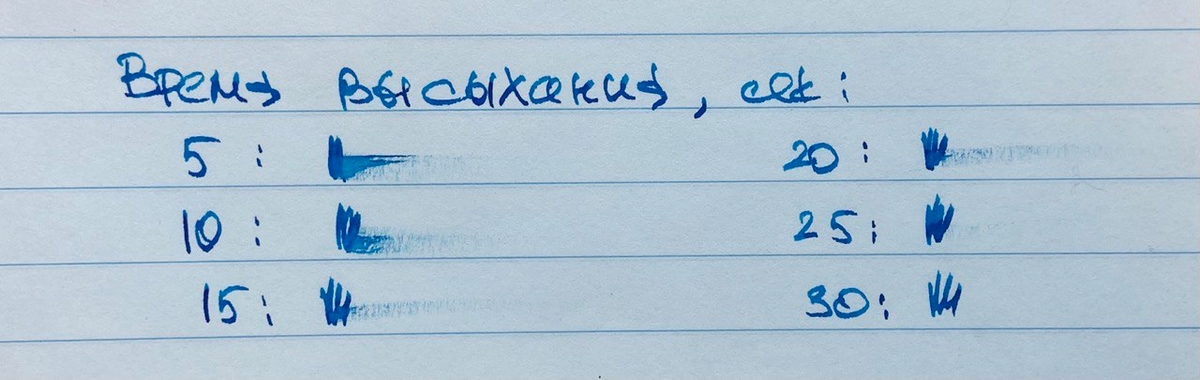 Время высыхания, сек:
5: 20:
10: 25:
15: 30: